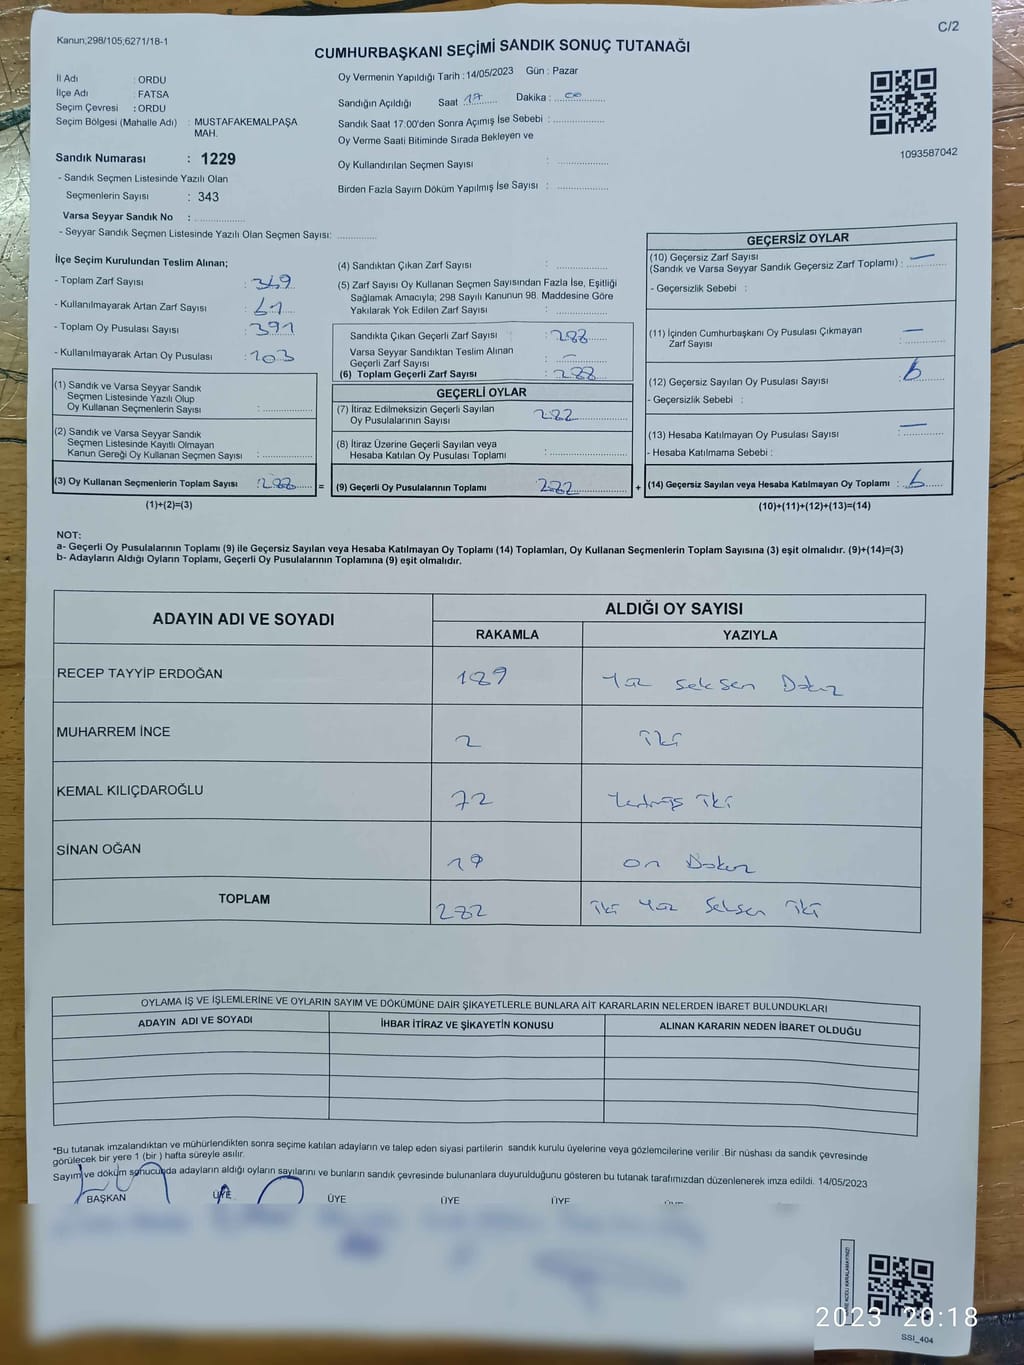 C/2
Kanun;298/105;6271/18-1
CUMHURBAŞKANI SEÇİMİ SANDIK SONUÇ TUTANAĞI
İl Adı : ORDU
İlçe Adı : FATSA
Seçim Çevresi : ORDU
Seçim Bölgesi (Mahalle Adı) : MUSTAFAKEMALPAŞA
MAH.
Sandık Numarası : 1229
- Sandık Seçmen Listesinde Yazılı Olan
Seçmenlerin Sayısı : 343
Varsa Seyyar Sandık No : ..............
- Seyyar Sandık Seçmen Listesinde Yazılı Olan Seçmen Sayısı: ............
Oy Vermenin Yapıldığı Tarih : 14/05/2023 Gün : Pazar
Sandığın Açıldığı Saat 17 Dakika : 00
Sandık Saat 17:00'den Sonra Açımış İse Sebebi : ................
Oy Verme Saati Bitiminde Sırada Bekleyen ve
Oy Kullandırılan Seçmen Sayısı : ................
Birden Fazla Sayım Döküm Yapılmış İse Sayısı : ................
1093587042
İlçe Seçim Kurulundan Teslim Alınan;
- Toplam Zarf Sayısı : 349
- Kullanılmayarak Artan Zarf Sayısı : 61
- Toplam Oy Pusulası Sayısı : 391
- Kullanılmayarak Artan Oy Pusulası : 103
(1) Sandık ve Varsa Seyyar Sandık
Seçmen Listesinde Yazılı Olup
Oy Kullanan Seçmenlerin Sayısı : ................
(2) Sandık ve Varsa Seyyar Sandık
Seçmen Listesinde Kayıtlı Olmayan
Kanun Gereği Oy Kullanan Seçmen Sayısı : ................
(3) Oy Kullanan Seçmenlerin Toplam Sayısı : 288
(1)+(2)=(3)
(4) Sandıktan Çıkan Zarf Sayısı : ................
(5) Zarf Sayısı Oy Kullanan Seçmen Sayısından Fazla İse, Eşitliği
Sağlamak Amacıyla; 298 Sayılı Kanunun 98. Maddesine Göre
Yakılarak Yok Edilen Zarf Sayısı : ................
Sandıkta Çıkan Geçerli Zarf Sayısı : 288
Varsa Seyyar Sandıktan Teslim Alınan
Geçerli Zarf Sayısı : —
(6) Toplam Geçerli Zarf Sayısı : 288
GEÇERLİ OYLAR
(7) İtiraz Edilmeksizin Geçerli Sayılan
Oy Pusulalarının Sayısı : 282
(8) İtiraz Üzerine Geçerli Sayılan veya
Hesaba Katılan Oy Pusulası Toplamı : ................
= (9) Geçerli Oy Pusulalarının Toplamı 282
GEÇERSİZ OYLAR
(10) Geçersiz Zarf Sayısı
(Sandık ve Varsa Seyyar Sandık Geçersiz Zarf Toplamı) : —
- Geçersizlik Sebebi :
(11) İçinden Cumhurbaşkanı Oy Pusulası Çıkmayan
Zarf Sayısı : —
(12) Geçersiz Sayılan Oy Pusulası Sayısı : 6
- Geçersizlik Sebebi :
(13) Hesaba Katılmayan Oy Pusulası Sayısı : —
- Hesaba Katılmama Sebebi :
+ (14) Geçersiz Sayılan veya Hesaba Katılmayan Oy Toplamı : 6
(10)+(11)+(12)+(13)=(14)
NOT:
a- Geçerli Oy Pusulalarının Toplamı (9) ile Geçersiz Sayılan veya Hesaba Katılmayan Oy Toplamı (14) Toplamları, Oy Kullanan Seçmenlerin Toplam Sayısına (3) eşit olmalıdır. (9)+(14)=(3)
b- Adayların Aldığı Oyların Toplamı, Geçerli Oy Pusulalarının Toplamına (9) eşit olmalıdır.
ADAYIN ADI VE SOYADI
ALDIĞI OY SAYISI
RAKAMLA YAZIYLA
RECEP TAYYİP ERDOĞAN 189 Yüz seksen Dokuz
MUHARREM İNCE 2 iki
KEMAL KILIÇDAROĞLU 72 Yetmiş iki
SİNAN OĞAN 19 on Dokuz
TOPLAM 282 iki Yüz Seksen iki
OYLAMA İŞ VE İŞLEMLERİNE VE OYLARIN SAYIM VE DÖKÜMÜNE DAİR ŞİKAYETLERLE BUNLARA AİT KARARLARIN NELERDEN İBARET BULUNDUKLARI
ADAYIN ADI VE SOYADI İHBAR İTİRAZ VE ŞİKAYETİN KONUSU ALINAN KARARIN NEDEN İBARET OLDUĞU
*Bu tutanak imzalandıktan ve mühürlendikten sonra seçime katılan adayların ve talep eden siyasi partilerin sandık kurulu üyelerine veya gözlemcilerine verilir .Bir nüshası da sandık çevresinde
görülecek bir yere 1 (bir ) hafta süreyle asılır.
Sayım ve döküm sonucunda adayların aldığı oyların sayılarını ve bunların sandık çevresinde bulunanlara duyurulduğunu gösteren bu tutanak tarafımızdan düzenlenerek imza edildi. 14/05/2023
BAŞKAN ÜYE ÜYE ÜYE ÜYE
2023 20:18
SSİ_404